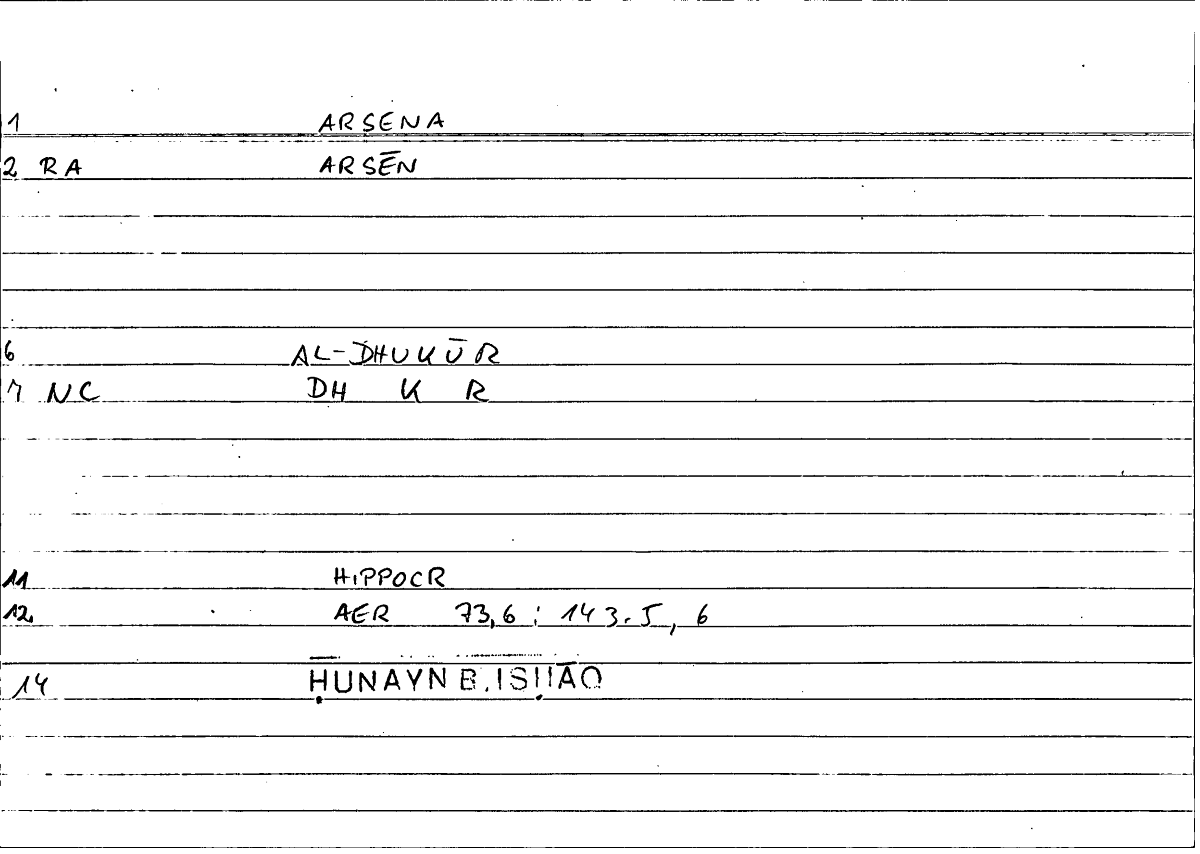 1 ARSENA
2 RA ARSĒN
6 AL-DHUKŪR
7 NC DH K R
11 HIPPOCR
12 AER 73,6 : 143.5, 6
14 ḤUNAYN B. ISḤĀQ